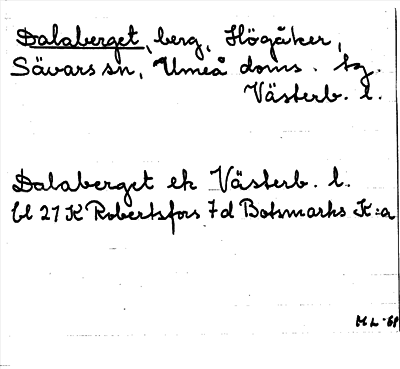 Dalaberget, berg, Högåker,
Sävars sn, Umeå doms. tg.
Västerb. l.
Dalaberget ek Västerb. l.
bl 27 K Robertsfors 7d Botsmarks K:a
ML-68